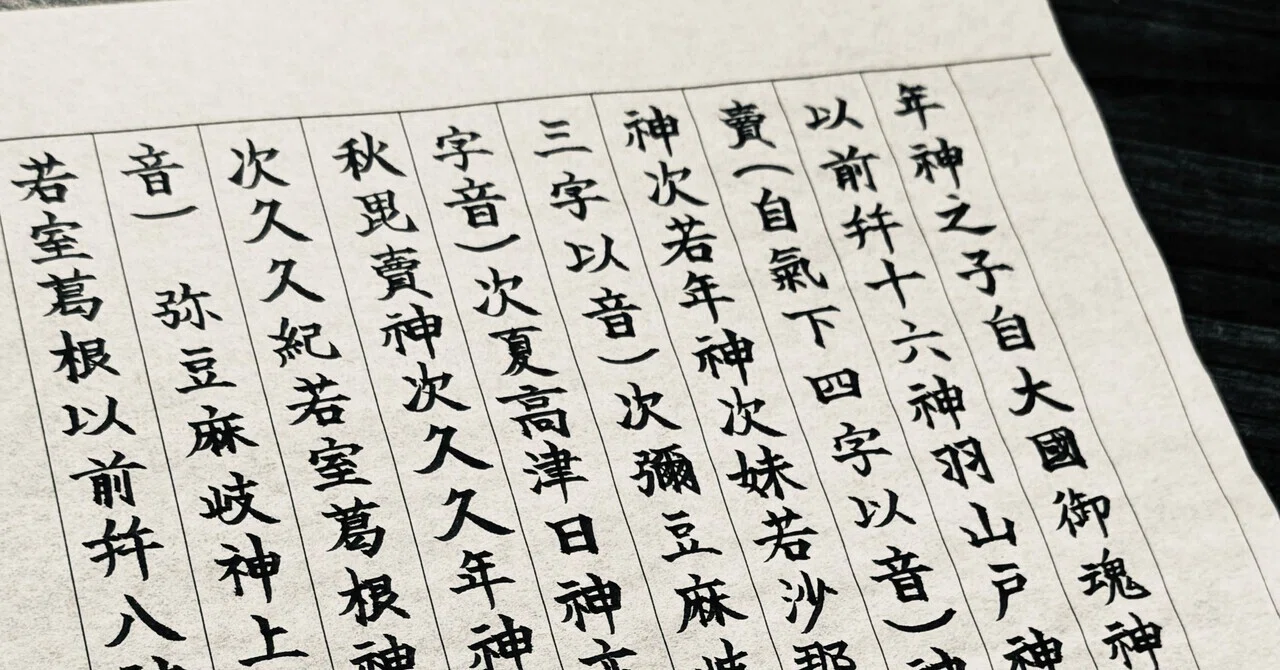 年神之子自大國御魂神
以前幷十六神羽山戸神
賣(自氣下四字以音)神
神次若年神次妹若沙那
三字以音)次彌豆麻岐
字音)次夏高津日神亦
秋毘賣神次久久年神
次久久紀若室葛根神
音) 弥豆麻岐神上
若室葛根以前幷八